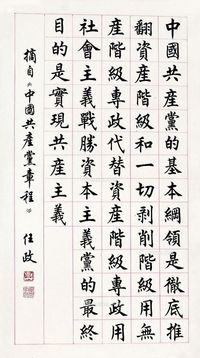 中國共産黨的基本綱領是徹底推
翻資産階級和一切剥削階級用無
産階級專政代替資産階級專政用
社會主義戰勝資本主義黨的最終
目的是實現共産主義
摘自《中國共産黨章程》 任政